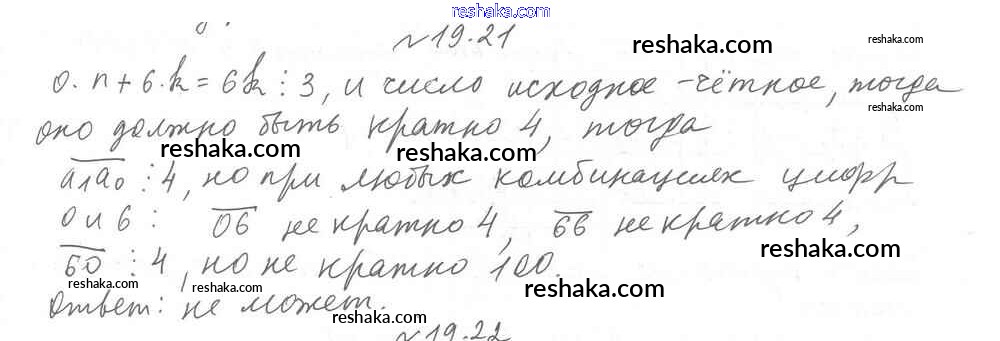 reshaka.com
№19.21
reshaka.com
reshaka.com
0·n+6·k=6k⋮3, и число исходное - чётное, тогда
reshaka.com
оно должно быть кратно 4, тогда
reshaka.com reshaka.com
a₁a₀⋮4, но при любых комбинациях цифр
0 и 6: 06 не кратно 4, 66 не кратно 4,
reshaka.com
60⋮4, но не кратно 100.
reshaka.com reshaka.com reshaka.com
Ответ: не может.
reshaka.com
№19.22